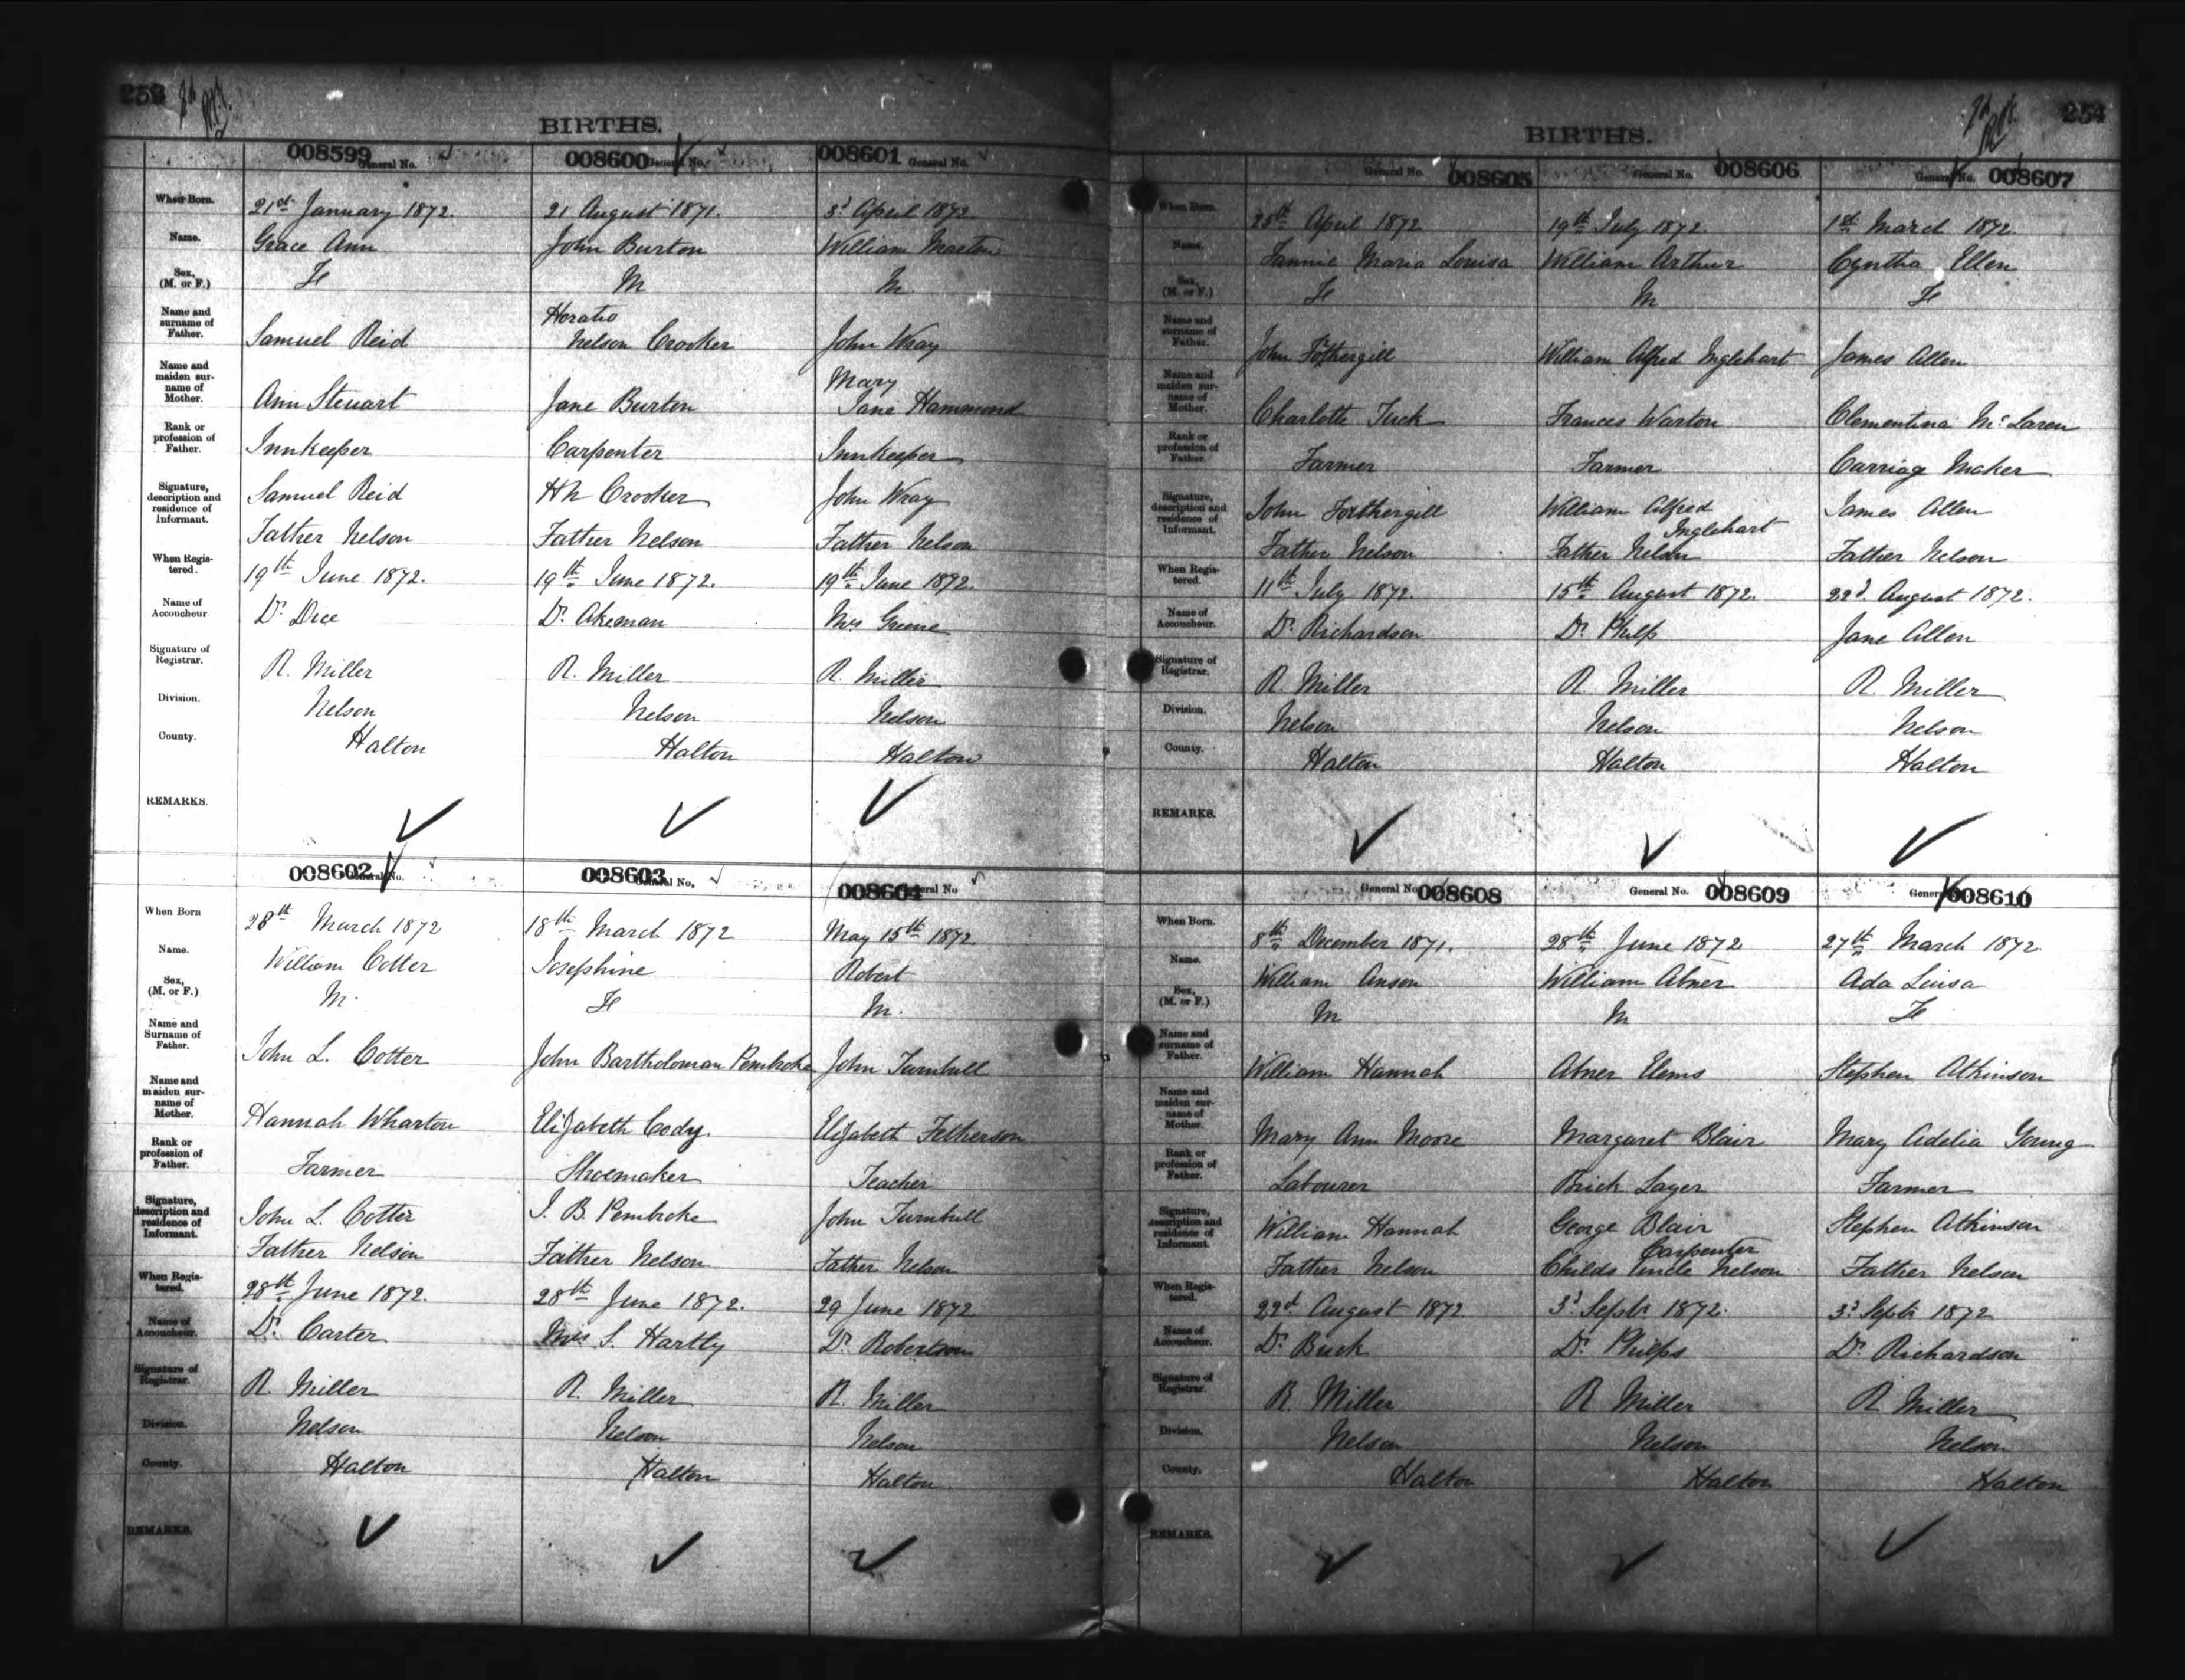 253
BIRTHS.
008599 General No. 008600 General No. 008601 General No.
When Born. 21st January 1872. 21 August 1871. 3d April 1872
Name. Grace Ann John Burton William Marton
Sex, (M. or F.) Fe M M.
Horatio
Name and surname of Father. Samuel Reid Nelson Crooker John Wray
Mary
Name and maiden surname of Mother. Ann Steuart Jane Burton Jane Hammond
Rank or profession of Father. Innkeeper Carpenter Innkeeper
Signature, description and residence of Informant. Samuel Reid HN Crooker John Wray
Father Nelson Father Nelson Father Nelson
When Registered. 19th June 1872. 19th June 1872. 19th June 1872.
Name of Accoucheur. Dr Dice Dr. Akeman Mrs Greene
Signature of Registrar. R. Miller R. Miller R. Miller
Division. Nelson Nelson Nelson
County. Halton Halton Halton
REMARKS.
008602 General No. 008603 General No. 008604 General No
When Born 28th March 1872 18th March 1872 May 15th 1872
Name. William Cotter Josephine Robert
Sex, (M. or F.) M. Fe M.
Name and Surname of Father. John L. Cotter John Bartholoman Pembroke John Turnbull
Name and maiden surname of Mother. Hannah Wharton Elizabeth Cody. Elizabeth Fetherson
Rank or profession of Father. Farmer Shoemaker Teacher
Signature, description and residence of Informant. John L. Cotter J. B. Pembroke John Turnbull
Father Nelson Father Nelson Father Nelson
When Registered. 28th June 1872. 28th June 1872. 29 June 1872
Name of Accoucheur. Dr. Carter Mrs S. Hartly Dr Robertson
Signature of Registrar. R. Miller R. Miller R. Miller
Division. Nelson Nelson Nelson
County. Halton Halton Halton
REMARKS.
254
BIRTHS.
General No. 008605 General No. 008606 General No. 008607
When Born. 25th April 1872 19th July 1872. 1st March 1872.
Name. Fannie Maria Louisa William Arthur Cyntha Ellen
Sex, (M. or F.) Fe M Fe
Name and surname of Father. John Fothergill William Alfred Inglehart James Allen
Name and maiden surname of Mother. Charlotte Tuck Frances Warton Clementina McLaren
Rank or profession of Father. Farmer Farmer Carriage Maker
Signature, description and residence of Informant. John Forthergill William Alfred Inglehart James Allen
Father Nelson Father Nelson Father Nelson
When Registered. 11th July 1872. 15th August 1872. 22d. August 1872.
Name of Accoucheur. Dr Richardson Dr Philp Jane Allen
Signature of Registrar. R Miller R. Miller R. Miller
Division. Nelson Nelson Nelson
County. Halton Halton Halton
REMARKS.
General No. 008608 General No. 008609 General No. 008610
When Born. 8th December 1871. 28th June 1872 27th March 1872.
Name. William Anson William Abner Ada Luisa
Sex, (M. or F.) M M Fe
Name and surname of Father. William Hannah Abner Elems Stephen Atkinson
Name and maiden surname of Mother. Mary Ann Moore Margaret Blair Mary Adelia Young
Rank or profession of Father. Labourer Brick Layer Farmer
Signature, description and residence of Informant. William Hannah George Blair Stephen Atkinson
Carpenter
Father Nelson Childs Uncle Nelson Father Nelson
When Registered. 22d August 1872 3d Septr 1872. 3d Septr 1872
Name of Accoucheur. Dr Buck Dr. Philps Dr Richardson
Signature of Registrar. R Miller R Miller R Miller
Division. Nelson Nelson Nelson
County. Halton Halton Halton
REMARKS.